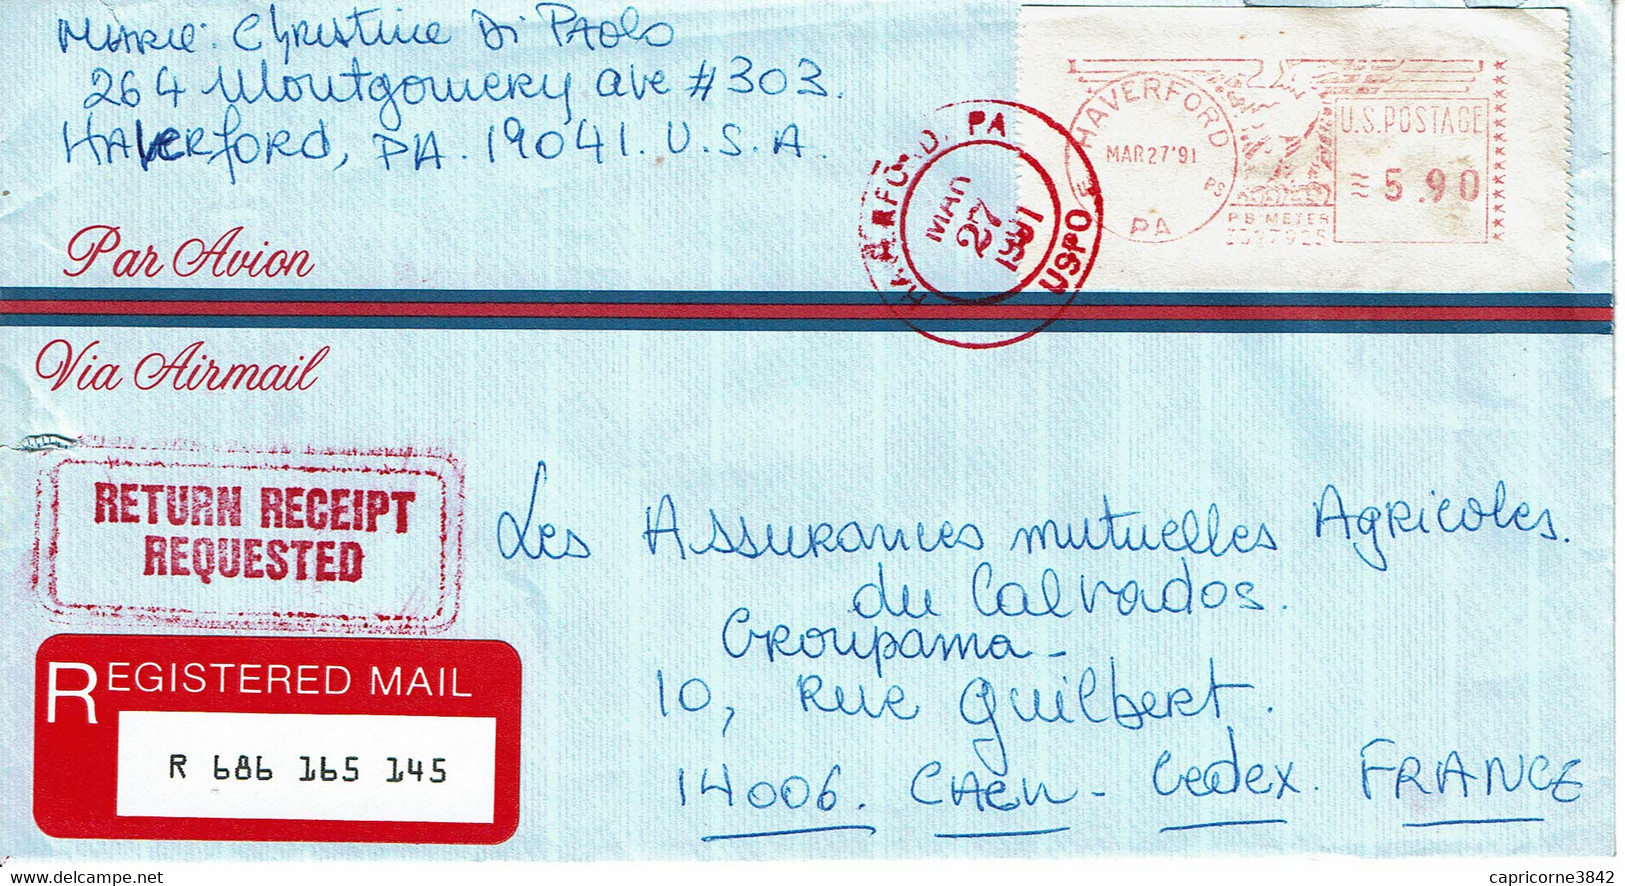 Marie: Christine Di Paolo
264 Montgomery ave #303.
HAVERFORD, PA. 19041. U.S.A.
HAVERFORD
MAR27'91
PS
PA
P.B.METER
U.S.POSTAGE
≈ 5.90
HAVERFORD, PA
MAR
27
1991
USPO
Par Avion
Via Airmail
RETURN RECEIPT
REQUESTED
REGISTERED MAIL
R 686 165 145
Les Assurances mutuelles Agricoles.
du Calvados.
Groupama -
10, Rue Guilbert.
14006. CAEN - Cedex. FRANCE
www.delcampe.net
capricorne3842